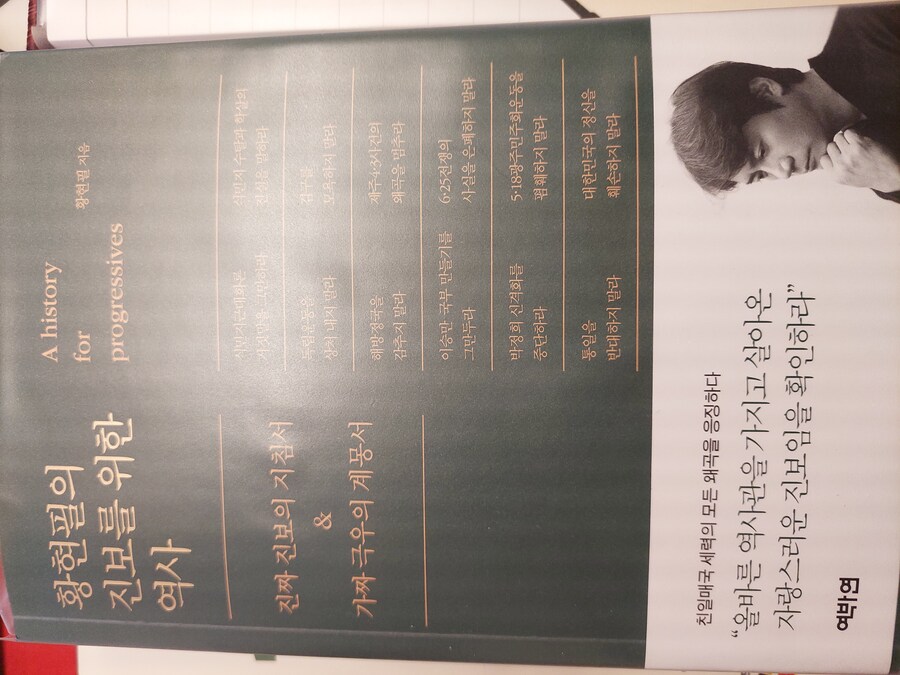 황현필의
진보를 위한
역사
A history
for
progressives
황현필 지음
진짜 진보의 지침서
&
가짜 극우의 계몽서
식민지근대화론
거짓말을 그만하라
식민지 수탈과 학살의
진실을 말하라
독립운동을
상처 내지 말라
김구를
모욕하지 말라
해방정국을
감추지 말라
제주4·3사건의
왜곡을 멈추라
이승만 국부 만들기를
그만두라
6·25전쟁의
사실을 은폐하지 말라
박정희 신격화를
중단하라
5·18광주민주화운동을
폄훼하지 말라
통일을
반대하지 말라
대한민국의 정신을
훼손하지 말라
친일매국 세력의 모든 왜곡을 응징하다
“올바른 역사관을 가지고 살아온
자랑스러운 진보임을 확인하라”
역바연